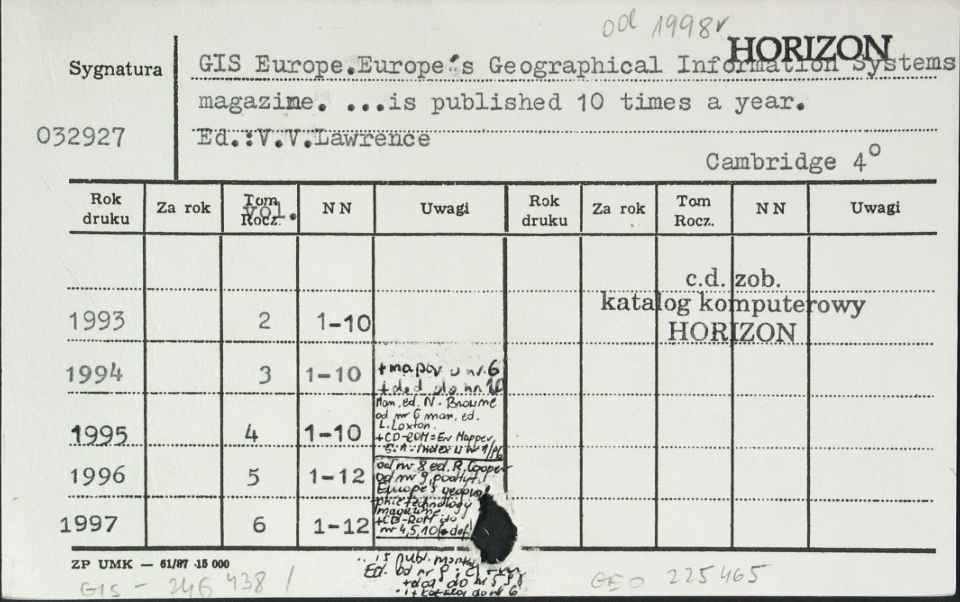 od 1998r
HORIZON
Sygnatura
GIS Europe.Europe's Geographical Information Systems
magazine. ...is published 10 times a year.
032927
Ed.:V.V.Lawrence
Cambridge 4°
Rok druku Za rok Tom Rocz. vol. NN Uwagi Rok druku Za rok Tom Rocz. NN Uwagi
c.d. zob.
katalog komputerowy
HORIZON
1993 2 1-10
1994 3 1-10
+ mapa nr. 6
+ dod do nr. 10
1995 4 1-10
Man. ed. N. Browne
od nr 6 man. ed.
L. Loxton.
+CD-ROM = Er Mapper
1996 5 1-12
od nr 8 ed. R. Cooper
od nr 9 podtyt.
Europe's geogra-
phic technology
magazine.
1997 6 1-12
+CD-ROM do
nr 4,5,10
ZP UMK — 61/87 - 15 000
... is publ. monthly
Ed. od nr 8:
+ dod do nr
+ katalog do nr 6
GIS - 246 438 /
GEO 225465